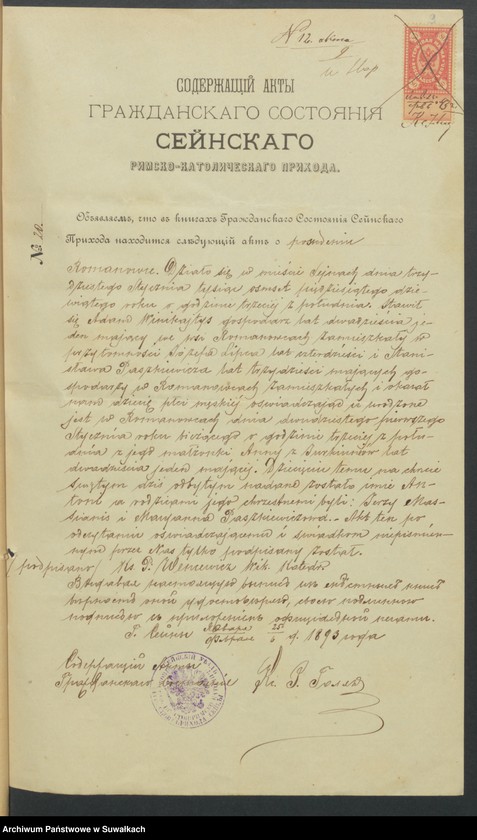 № 12.
9
СОДЕРЖАЩІЙ АКТЫ
ГРАЖДАНСКАГО СОСТОЯНІЯ
СЕЙНСКАГО
РИМСКО-КАТОЛИЧЕСКАГО ПРИХОДА.
№ 20.
Объявляемъ, что въ книгахъ Гражданскаго Состоянія Сейнскаго
Прихода находится слѣдующій актъ о рожденіи
Romanowce. Działo się w mieście Sejnach dnia trzy-
dziestego Stycznia tysiąc osmset pięćdziesiątego dzie-
wiątego roku o godzinie trzeciej z południa. Stawił
się Adam gospodarz lat dwadzieścia je-
den mający we wsi Romanowcach zamieszkały w
przytomności Józefa Lipca lat czterdzieści i Stani-
sława Paszkiewicza lat trzydzieści mających go-
spodarzy w Romanowcach zamieszkałych i okazał
nam dziecię płci męskiej oświadczając iż urodzone
jest w Romanowcach dnia dwudziestego pierwszego
Stycznia roku bieżącego o godzinie trzeciej z połu-
dnia z jego małżonki Anny z lat
dwadzieścia jeden mającej. Dziecięciu temu na chrzcie
świętym dziś odbytym nadane zostało imię An-
toni a rodzicami jego chrzestnemi byli: Jerzy Mas-
sianis i Maryanna Paszkiewiczowa. – Akt ten po
odczytaniu oświadczającemu i świadkom niepiśmien-
nym przez Nas tylko podpisany został.
/podpisano/ Ks. P. Wencewicz Wik. Katedr
Выдавая настоящую выпись изъ
вѣрность оной удостовѣряю, своею
подписью съ приложеніемъ оффиціальной печати.
Г. Сейны Января 25 / Февраля 6 д. 1893 года
Содержащій Акты
Гражданскаго состоянія Кс. Р.
Archiwum Państwowe w Suwałkach